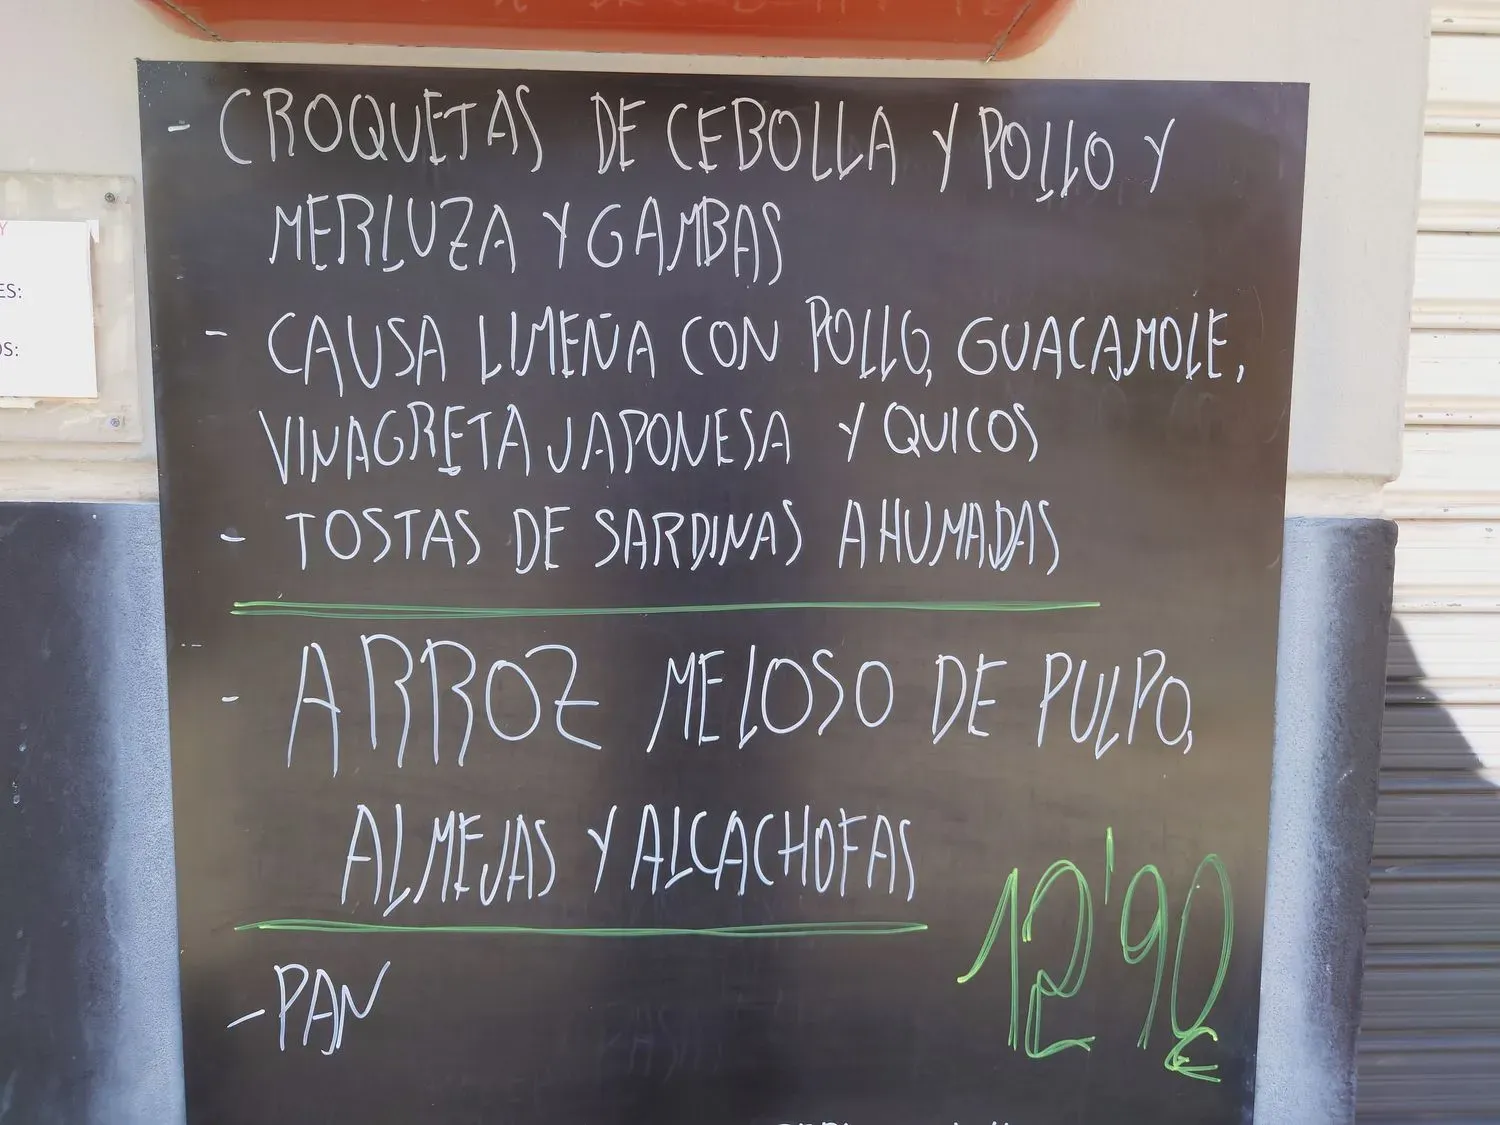 - CROQUETAS DE CEBOLLA Y POLLO Y
MERLUZA Y GAMBAS
- CAUSA LIMEÑA CON POLLO, GUACAMOLE,
VINAGRETA JAPONESA Y QUICOS
- TOSTAS DE SARDINAS AHUMADAS
- ARROZ MELOSO DE PULPO,
ALMEJAS Y ALCACHOFAS
12'90€
- PAN
Y
ES:
OS: